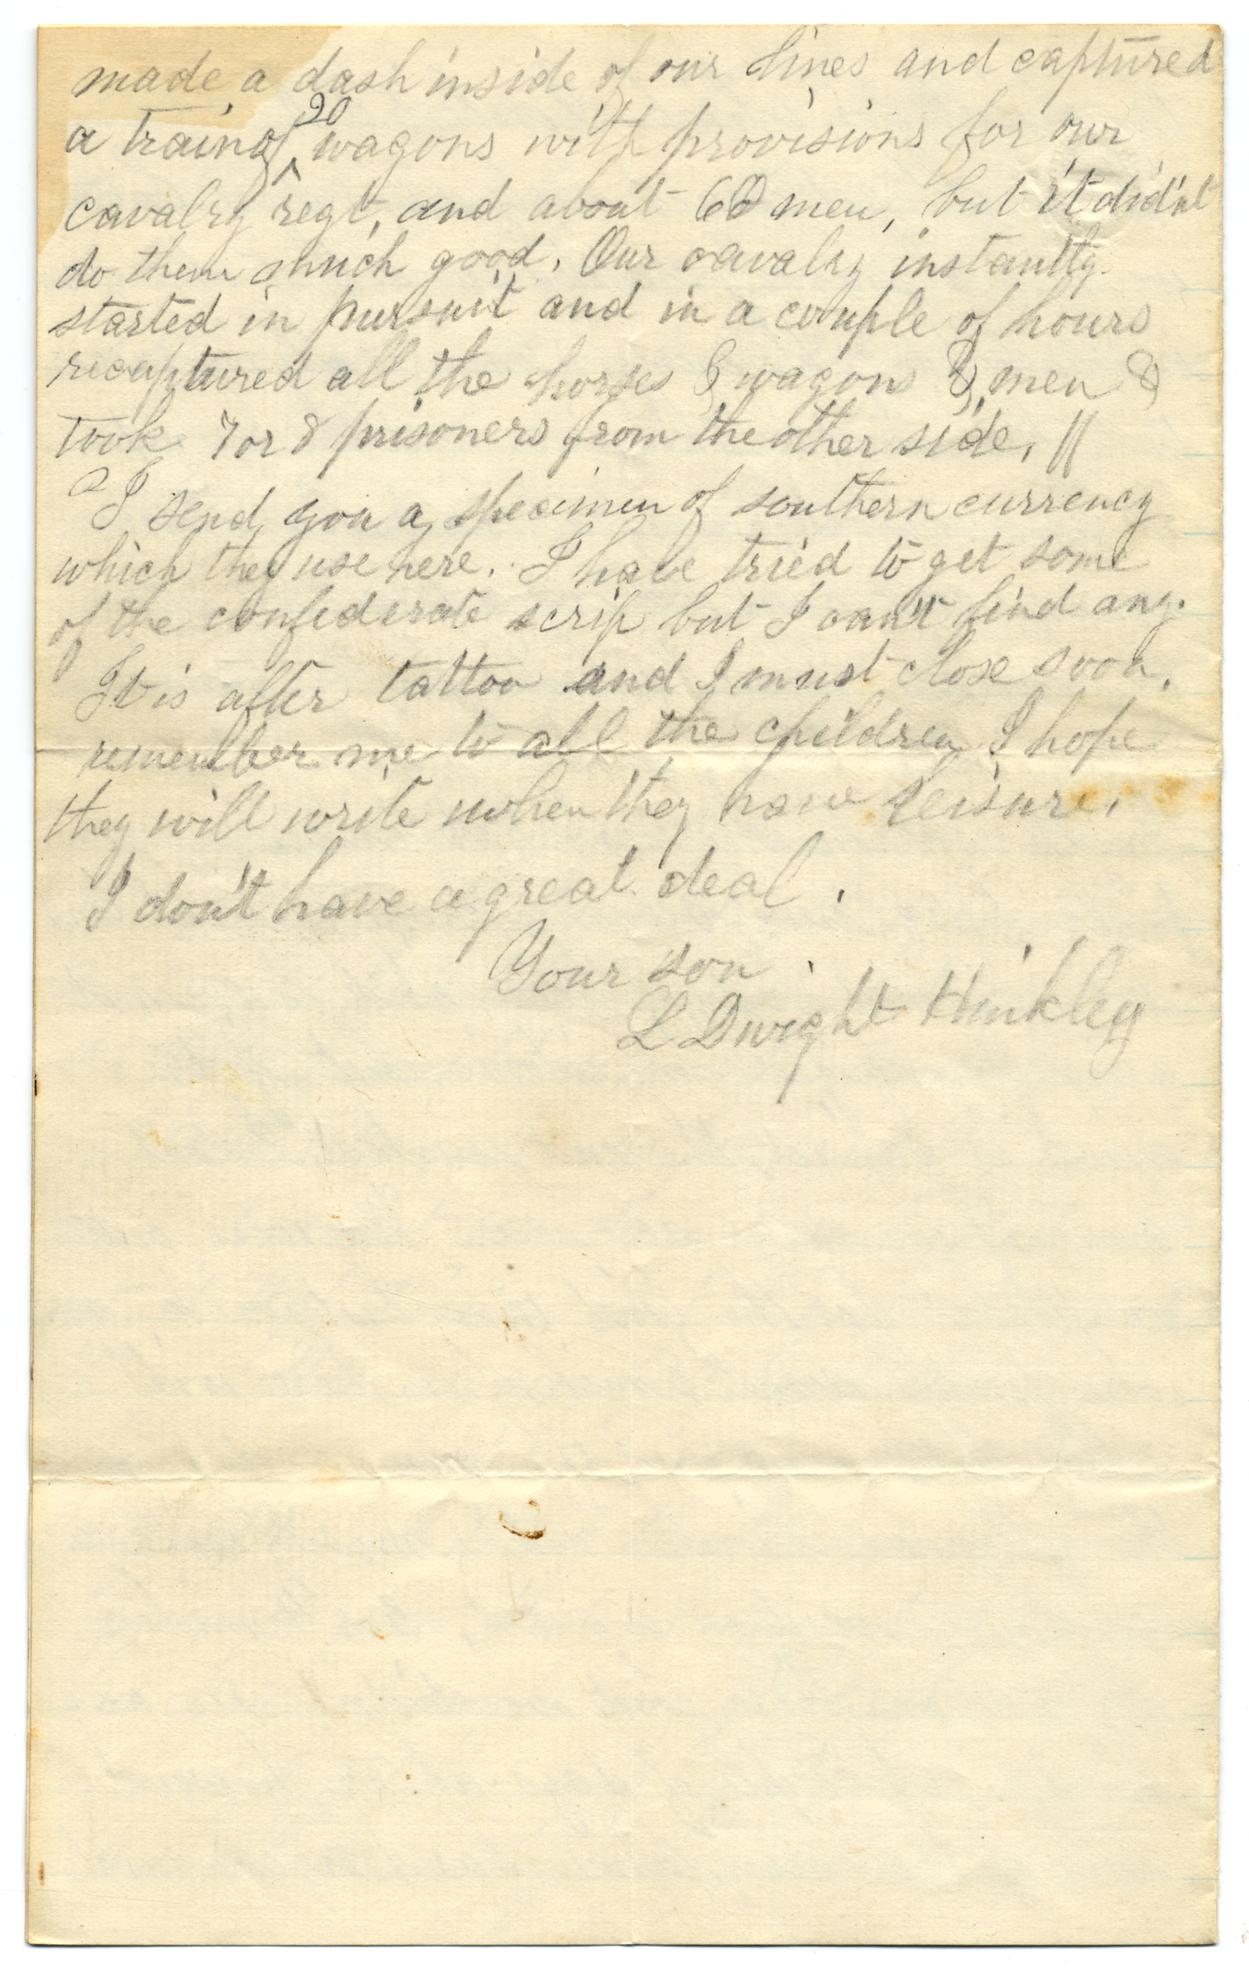 made a dash inside of our lines and captured
a train of ^20 wagons with provisions for our
cavalry regt, and about 60 men, but it did'nt
do them much good. Our cavalry instantly
started in pursuit and in a couple of hours
recaptured all the horses & wagons & men &
took 7 or 8 prisoners from the other side. //
I send you a specimen of southern currency
which they use here. I have tried to get some
of the confederate scrip but I can't find any.
It is after tattoo and I must close soon.
remember me to all the children I hope
they will write when they have leisure.
I don't have a great deal.
Your son
L Dwight Hinkley